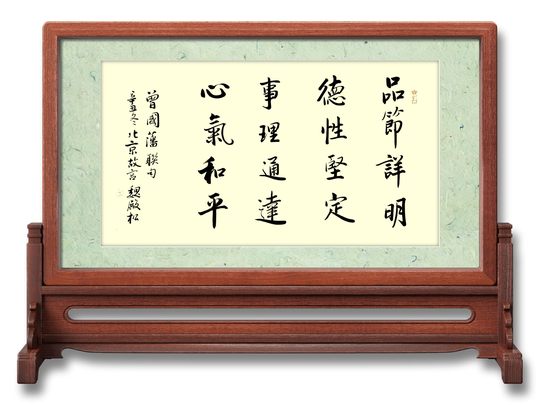 品節詳明
德性堅定
事理通達
心氣和平
曾國藩聯句
辛丑冬北京故宮魏殿松